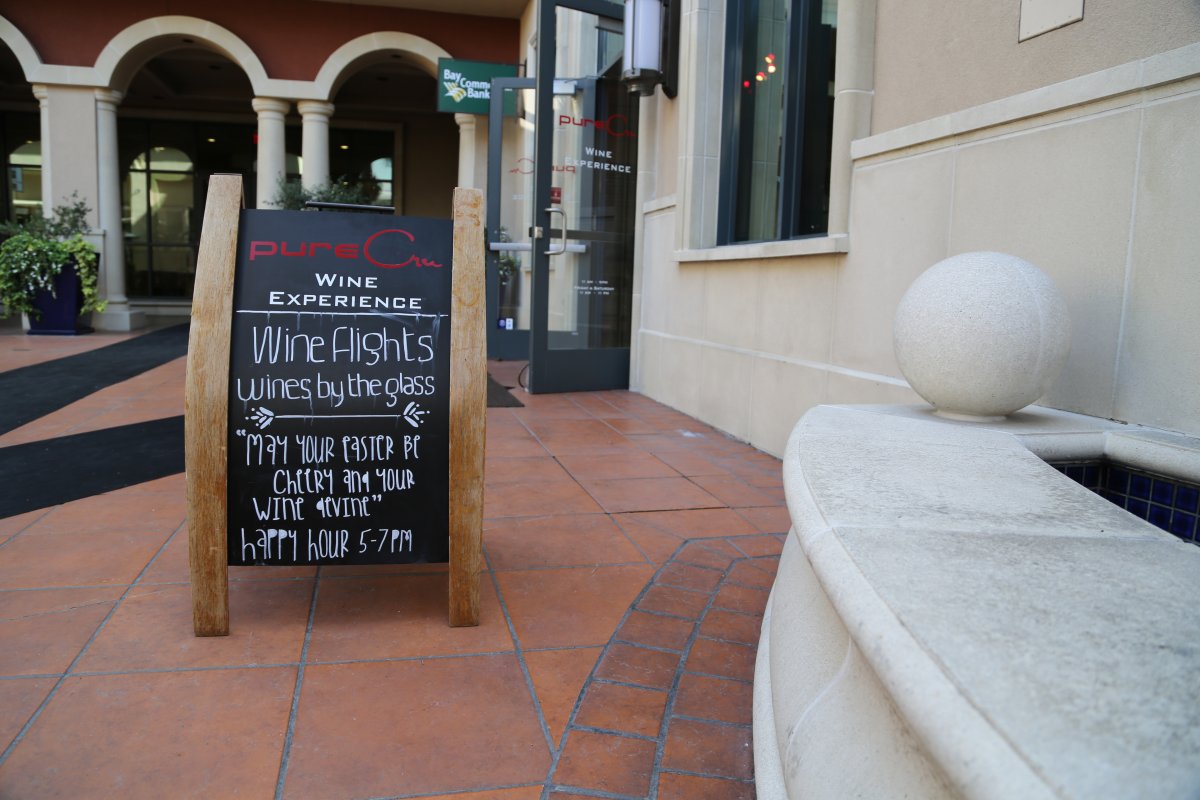 Bay
Comme
Bank
pureCru
WINE
EXPERIENCE
pureCru
WINE
EXPERIENCE
Wine flights
wines by the glass
"MAY YOUR EASTER BE
CHEERY AND YOUR
WINE DEVINE"
HAPPY HOUR 5-7PM